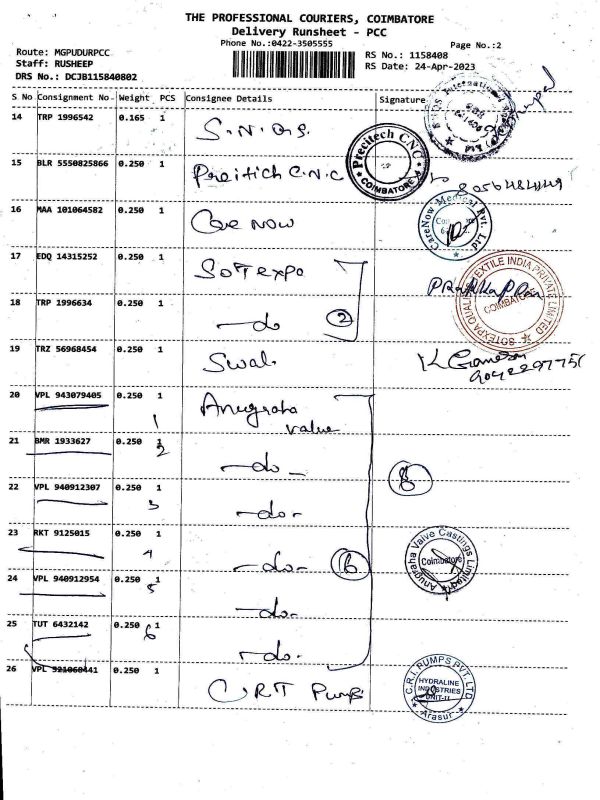 THE PROFESSIONAL COURIERS, COIMBATORE
Delivery Runsheet - PCC
Phone No.:0422-3505555
Page No.:2
Route: MGPUDURPCC
Staff: RUSHEEP
DRS No.: DCJB115840802
RS No.: 1158408
RS Date: 24-Apr-2023
S No Consignment No. Weight PCS Consignee Details Signature
14 TRP 1996542 0.165 1 S.N.Q.S.
15 BLR 5550825866 0.250 1 Preitich C.N.C
Precitech CNC
COIMBATORE
16 MAA 101064582 0.250 1 Care Now
CareNow Medical Pvt. Ltd
17 EDQ 14315252 0.250 1 Sotexpo
SOTEXPA QUALITY TEXTILE INDIA PRIVATE LIMITED
COIMBATORE
18 TRP 1996634 0.250 1 -do 2
19 TRZ 56968454 0.250 1 Swati
K Ganesan
20 VPL 943079405 0.250 1 Anugraha value
1
21 BMR 1933627 0.250 1 -do-
2
22 VPL 940912307 0.250 1 -do-
3
8
23 RKT 9125015 0.250 1 -do- 6
4
Anugraha Valve Castings Limited
Coimbatore
24 VPL 940912954 0.250 1 -do-
5
25 TUT 6432142 0.250 1 -do-
6
26 VPL 921060441 0.250 1 C.R.I Pumps
C.R.I. PUMPS PVT. LTD
HYDRALINE
INDUSTRIES
UNIT-II
Arasur